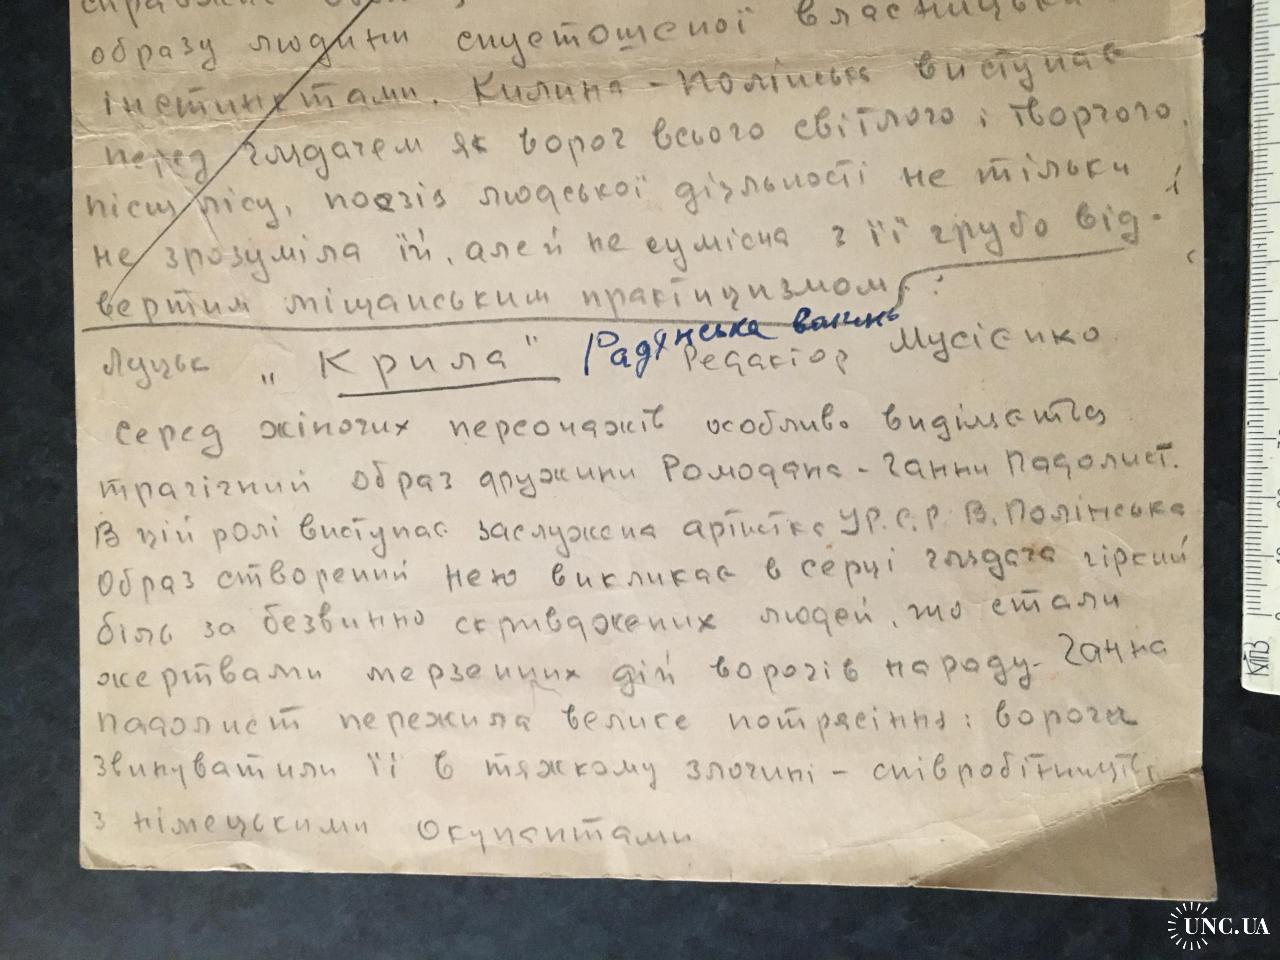 образу людини спустошеної власницьки
інстинктами. Килина - Полінська виступає
перед глядачем як ворог всього світлого і творчого.
пісні лісу, поезія людської діяльності не тільки
не зрозуміла їй, алей не сумісна з її грубо від-
вертим міщанським практицизмом.
Луцьк „Крила" Радянська волинь Редактор Мусієнко
серед жіночих персонажів особливо виділяться
трагічний образ дружини Ромодана - Ганни Падолист.
В цій ролі виступає заслужена артистка УР.С.Р. В. Полінська
Образ створений нею викликає в серці глядача гіркий
біль за безвинно скривджених людей, що стали
жертвами мерзених дій ворогів народу. Ганна
падолист пережила велике потрясіння: вороги
звинуватили її в тяжкому злочині - співробітництві
з німецькими окупантами
UNC.UA